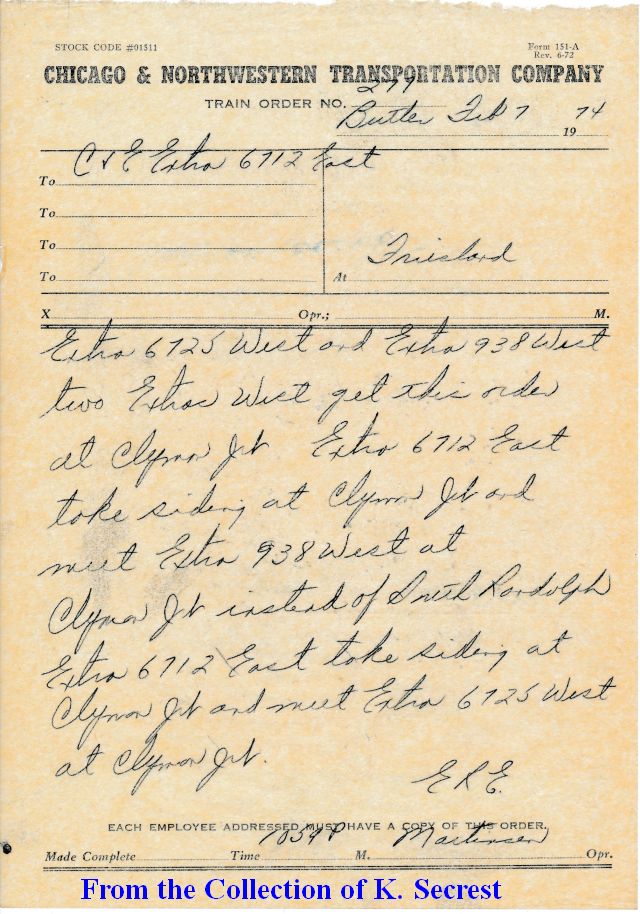 STOCK CODE #01511
Form 151-A
Rev. 6-72
CHICAGO & NORTHWESTERN TRANSPORTATION COMPANY
TRAIN ORDER NO. 277
Butler Feb 7 1974
To C & E Extra 6712 East
To
To
To At Friesland
X Opr.; M.
Extra 6725 West and Extra 938 West
two Extras West get this order
at Clyman Jct Extra 6712 East
take siding at Clyman Jct and
meet Extra 938 West at
Clyman Jct instead of South Randolph
Extra 6712 East take siding at
Clyman Jct and meet Extra 6725 West
at Clyman Jct.
ERE
EACH EMPLOYEE ADDRESSED MUST HAVE A COPY OF THIS ORDER.
Made Complete Time 1054 P M. Martinsen Opr.
From the Collection of K. Secrest